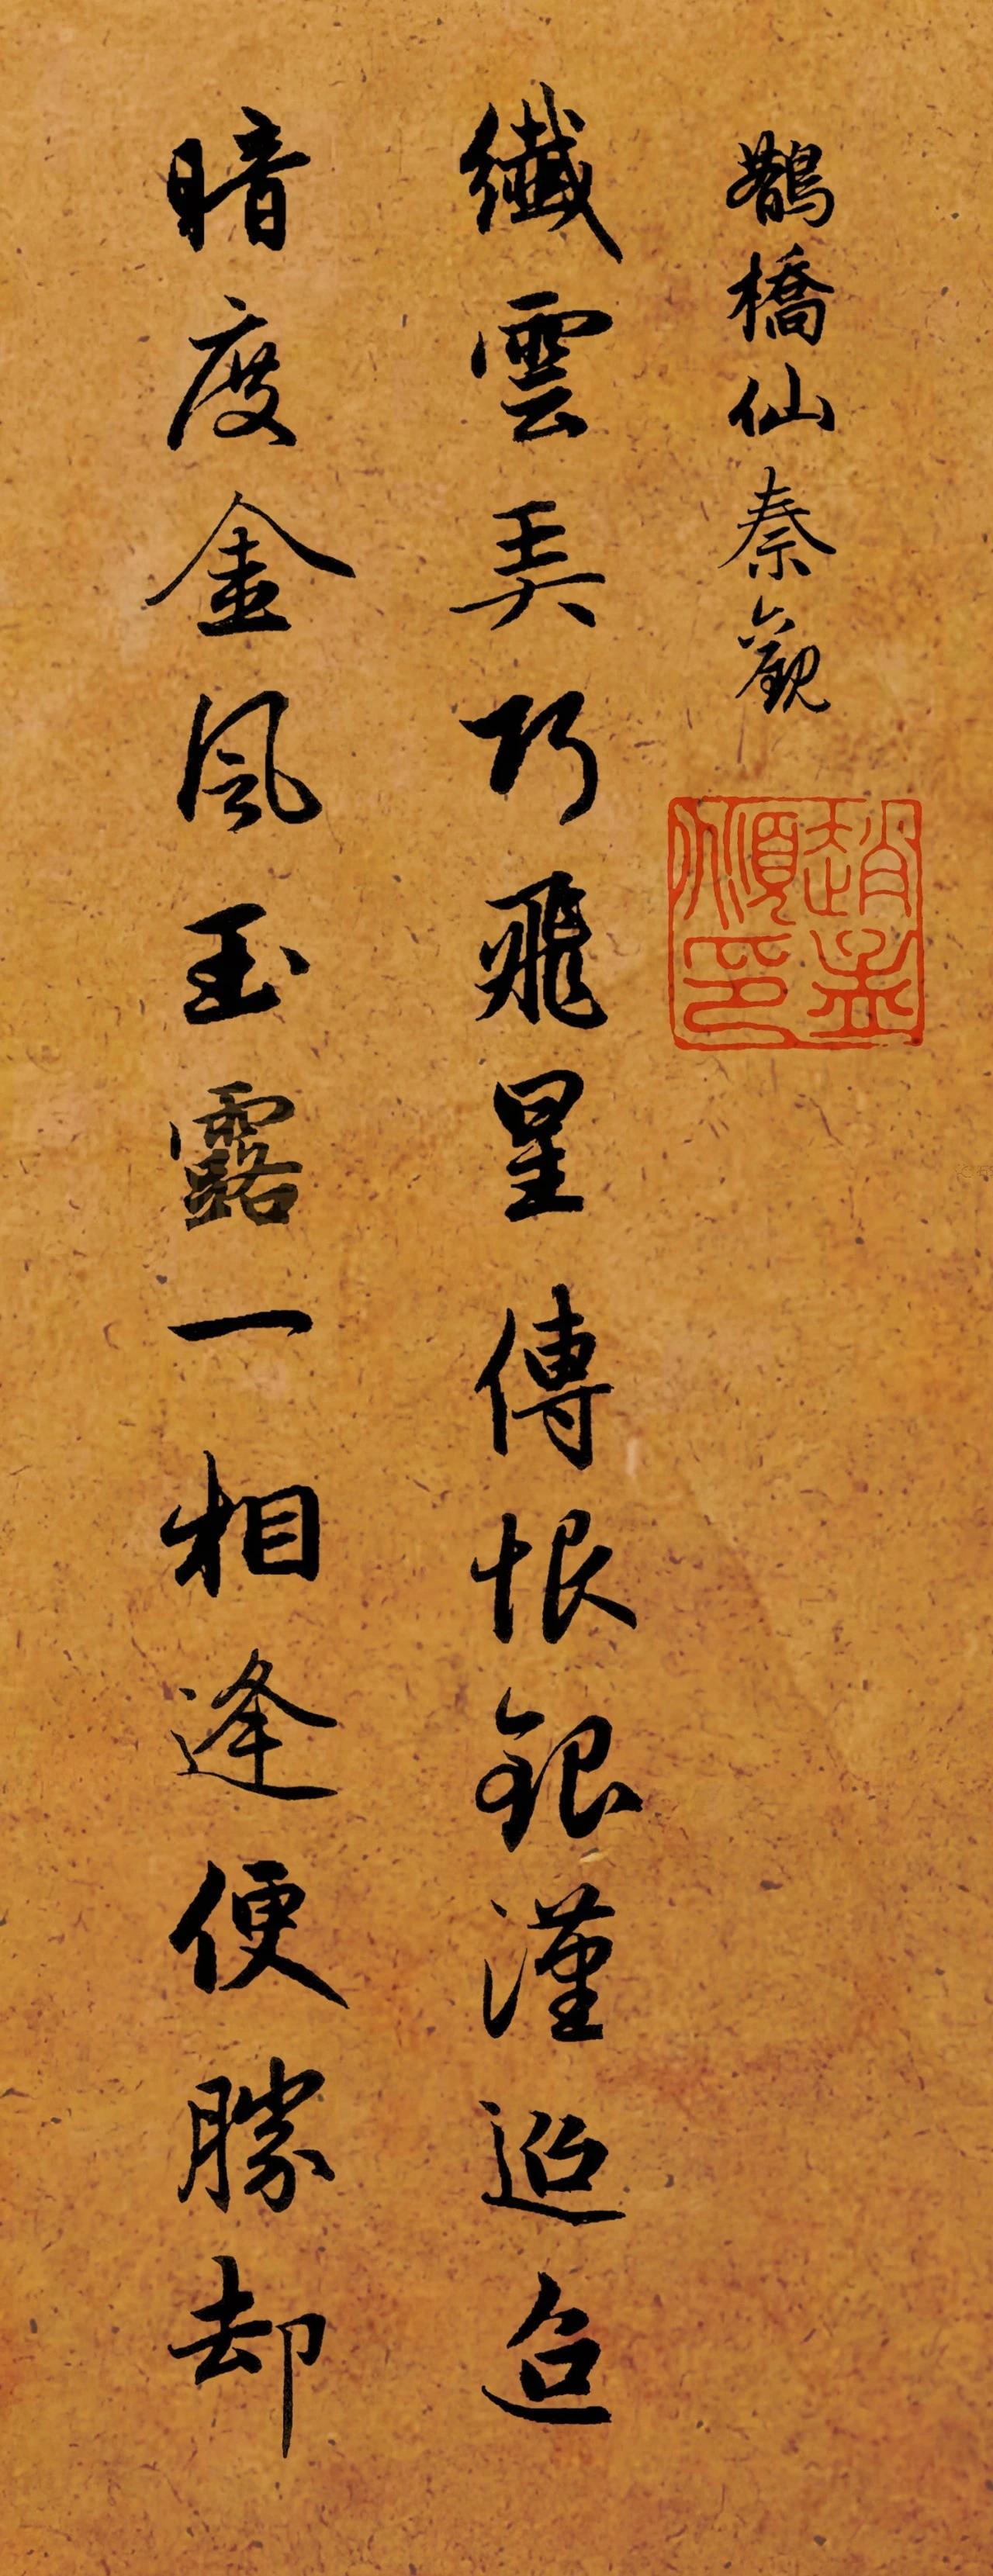 鵲橋仙秦觀
趙孟順印
纖雲弄巧飛星傳恨銀漢迢迢
暗度金風玉露一相逢便勝却